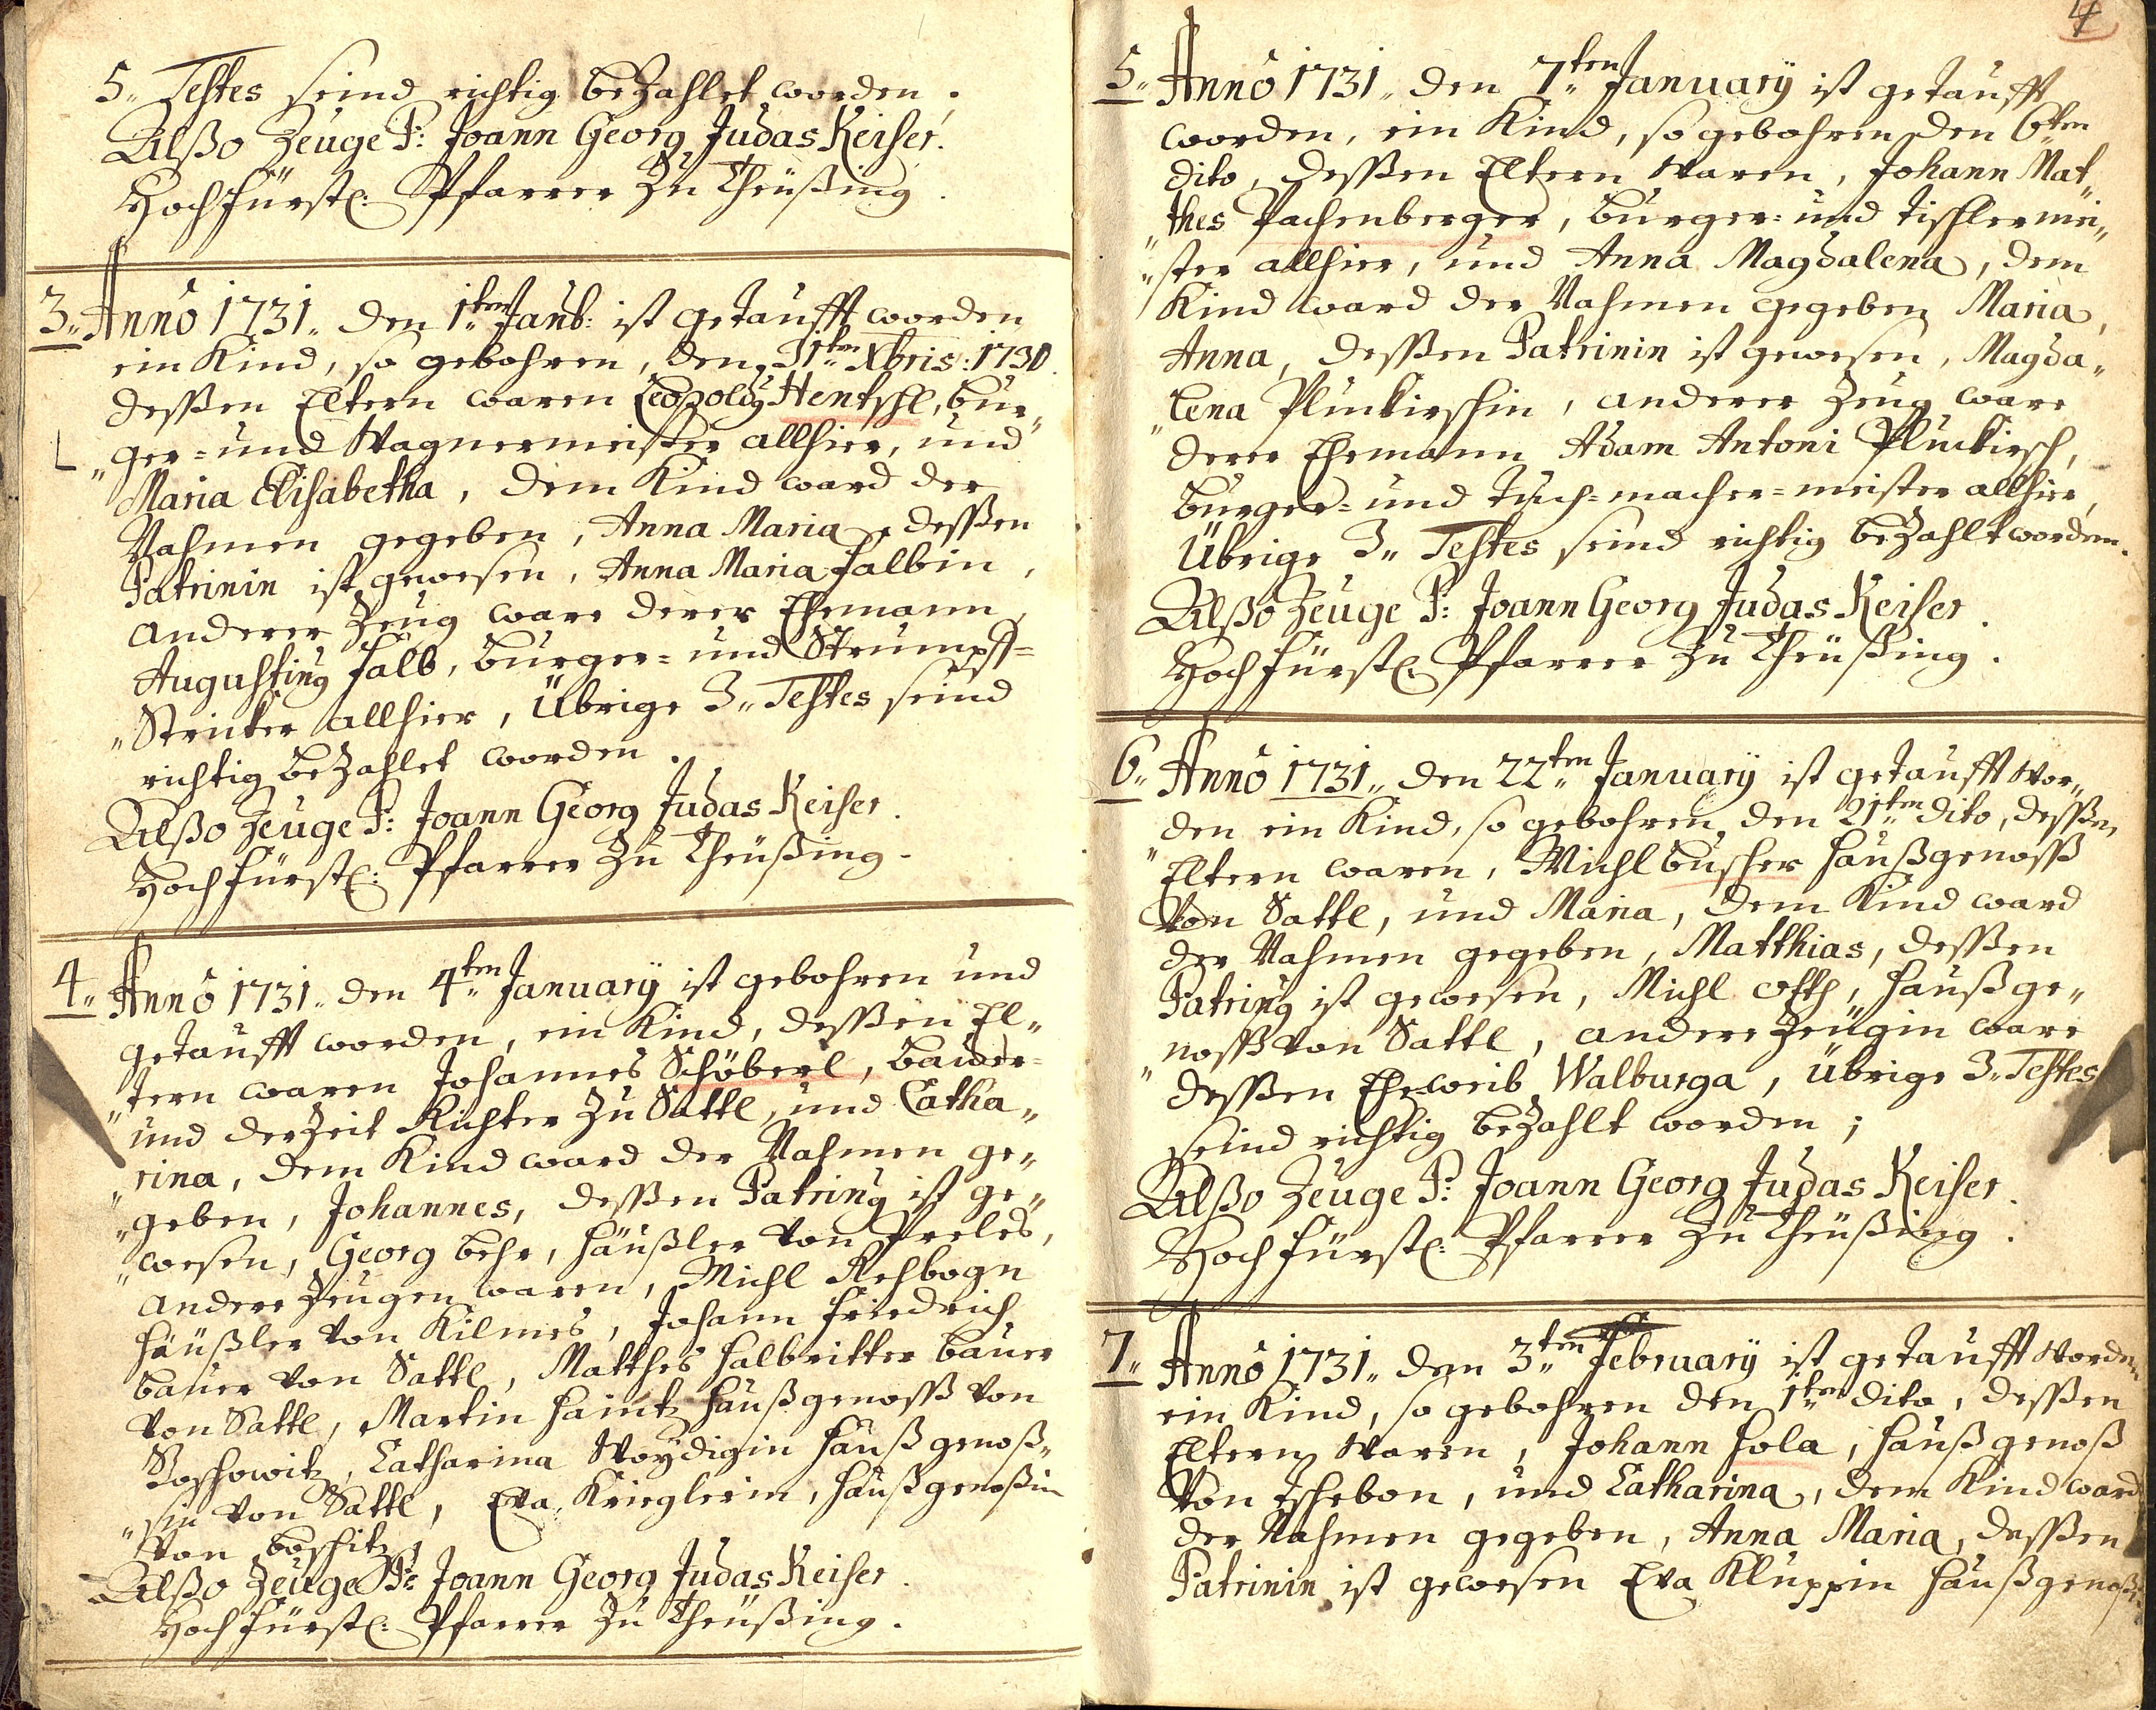 5„ Testes seind richtig bezahlet worden.
Alßo Zeuge P: Joann Georg Judas Keiser.
Hochfürstl: Pfarrer zu Theüßing.
3„ Anno 1731„ den 1ten Janu: ist getaufft worden
ein Kind, so gebohren, den 31ten Xbris: 1730.
deßen Eltern waren Leopoldg Hentschl, bur„
„ger= und Wagnermeister allhier, und
Maria Elisabetha, dem Kind ward der
Nahmen gegeben, Anna Maria, deßen
Patrinin ist gewesen, Anna Maria Halbin,
anderer Zeug ware derer Ehemann,
Augusting Halb, burger= und Strumpff=
„Stricker allhier, Übrige 3„ Testes seind
richtig bezahlet worden.
Alßo Zeuge P: Joann Georg Judas Keiser.
Hochfürstl: Pfarrer zu Theüßing.
4„ Anno 1731„ den 4ten January ist gebohren und
getaufft worden, ein Kind, deßen El„
„tern waren Johannes Schöberl, bauer=
und derzeit Richter zu Sattl, und Catha„
„rina, dem Kind ward der Nahmen ge„
„geben, Johannes, deßen Patring ist ge„
„wesen, Georg behr, häußler von Preles,
andere Zeugen waren, Michl Rehbogn
häußler von Kilmes, Johann Friedrich
bauer von Sattl, Matthes Halbritter bauer
von Sattl, Martin Haintz haußgenoß von
Poschowitz, Catharina Woydigin haußgenoß„
„sin von Sattl, Eva Krieglerin, haußgenoßin
von boschitz.
Alßo Zeuge P: Joann Georg Judas Keiser.
Hochfürstl: Pfarrer zu Theüßing.
4
5„ Anno 1731„ den 7ten January ist getaufft
worden, ein Kind, so gebohren den 6ten
dito, deßen Eltern waren, Johann Mat„
„thes Pachenberger, burger= und tischlermei„
„ster allhier, und Anna Magdalena, dem
Kind ward der Nahmen gegeben Maria,
Anna, deßen Patrinin ist gewesen, Magda„
„lena Pluckirschin, anderer Zeug ware
derer Ehemann Adam Antoni Pluckirsch,
burger= und tuch=macher=meister allhier,
Übrige 3„ Testes seind richtig bezahlt worden.
Alßo Zeuge P: Joann Georg Judas Keiser.
Hochfürstl: Pfarrer zu Theüßing.
6„ Anno 1731„ den 22ten January ist getaufft wor„
„den ein Kind, so gebohren den 21ten dito, deßen
Eltern waren, Michl buscher haußgenoß
von Sattl, und Maria, dem Kind ward
der Nahmen gegeben, Matthias, deßen
Patring ist gewesen, Michl haußge„
„noß von Sattl, andere Zeugin ware
deßen Eheweib Walburga, übrige 3„ Testes
seind richtig bezahlt worden;
Alßo Zeuge P: Joann Georg Judas Keiser.
Hochfürstl: Pfarrer zu Theüßing.
7„ Anno 1731„ den 3ten February ist getaufft worden
ein Kind, so gebohren den 1ten dito, deßen
Eltern waren, Johann Hola, haußgenoß
von Tschebon, und Catharina, dem Kind ward
der Nahmen gegeben, Anna Maria, deßen
Patrinin ist gewesen Eva Kluppin haußgenoß